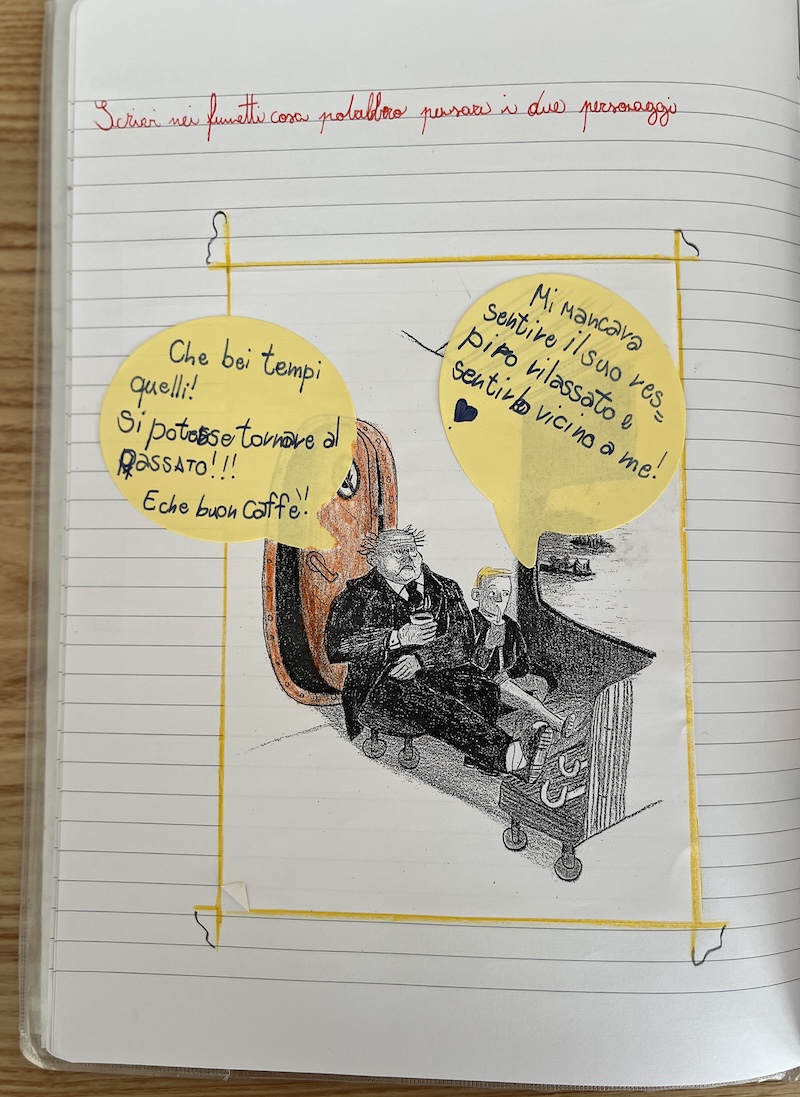 Scrivi nei fumetti cosa potrebbero pensare i due personaggi
Che bei tempi
quelli!
Si potesse tornare al
PASSATO!!!
E che buon caffè!!
Mi mancava
sentire il suo res=
piro rilassato e
sentirlo vicino a me!